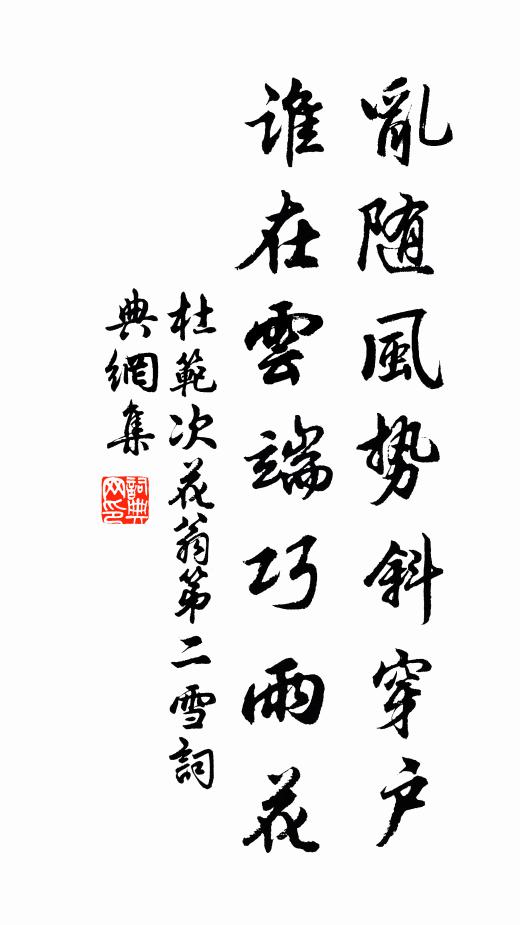 亂随風勢斜穿户
誰在雲端巧雨花
杜範次花翁第二雪詞
典網集
詞典网印